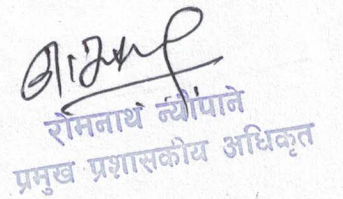 रोमनाथ न्यौपाने
प्रमुख प्रशासकीय अधिकृत